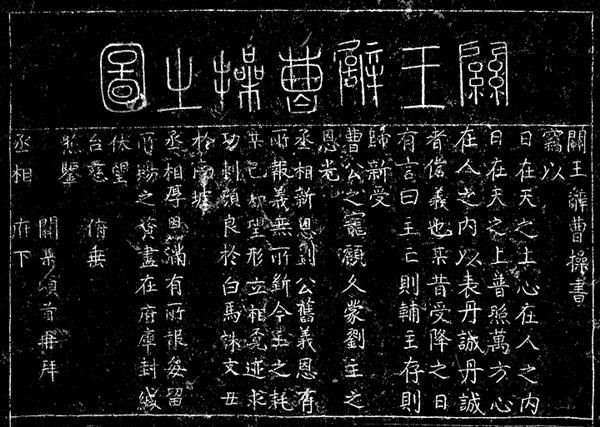 關王辭曹操之圖
關王辭曹操書
竊以
日在天之上心在人之内
日在天之上普照萬方心
在人之内以表丹誠丹誠
者信義也某昔受降之日
有言曰主亡則輔主存則
歸新受
曹公之寵顧久蒙劉主之
恩光
丞相新恩劉公舊義恩有
所報義無所斷今主之耗
某已知望形立相覓迹求
功刺顏良於白馬誅文丑
於南坡
丞相厚恩滿有所報每留
所賜之資盡在府庫封緘
伏望
台慈 俯垂
照鑒
關某頓首再拜
丞相 府下